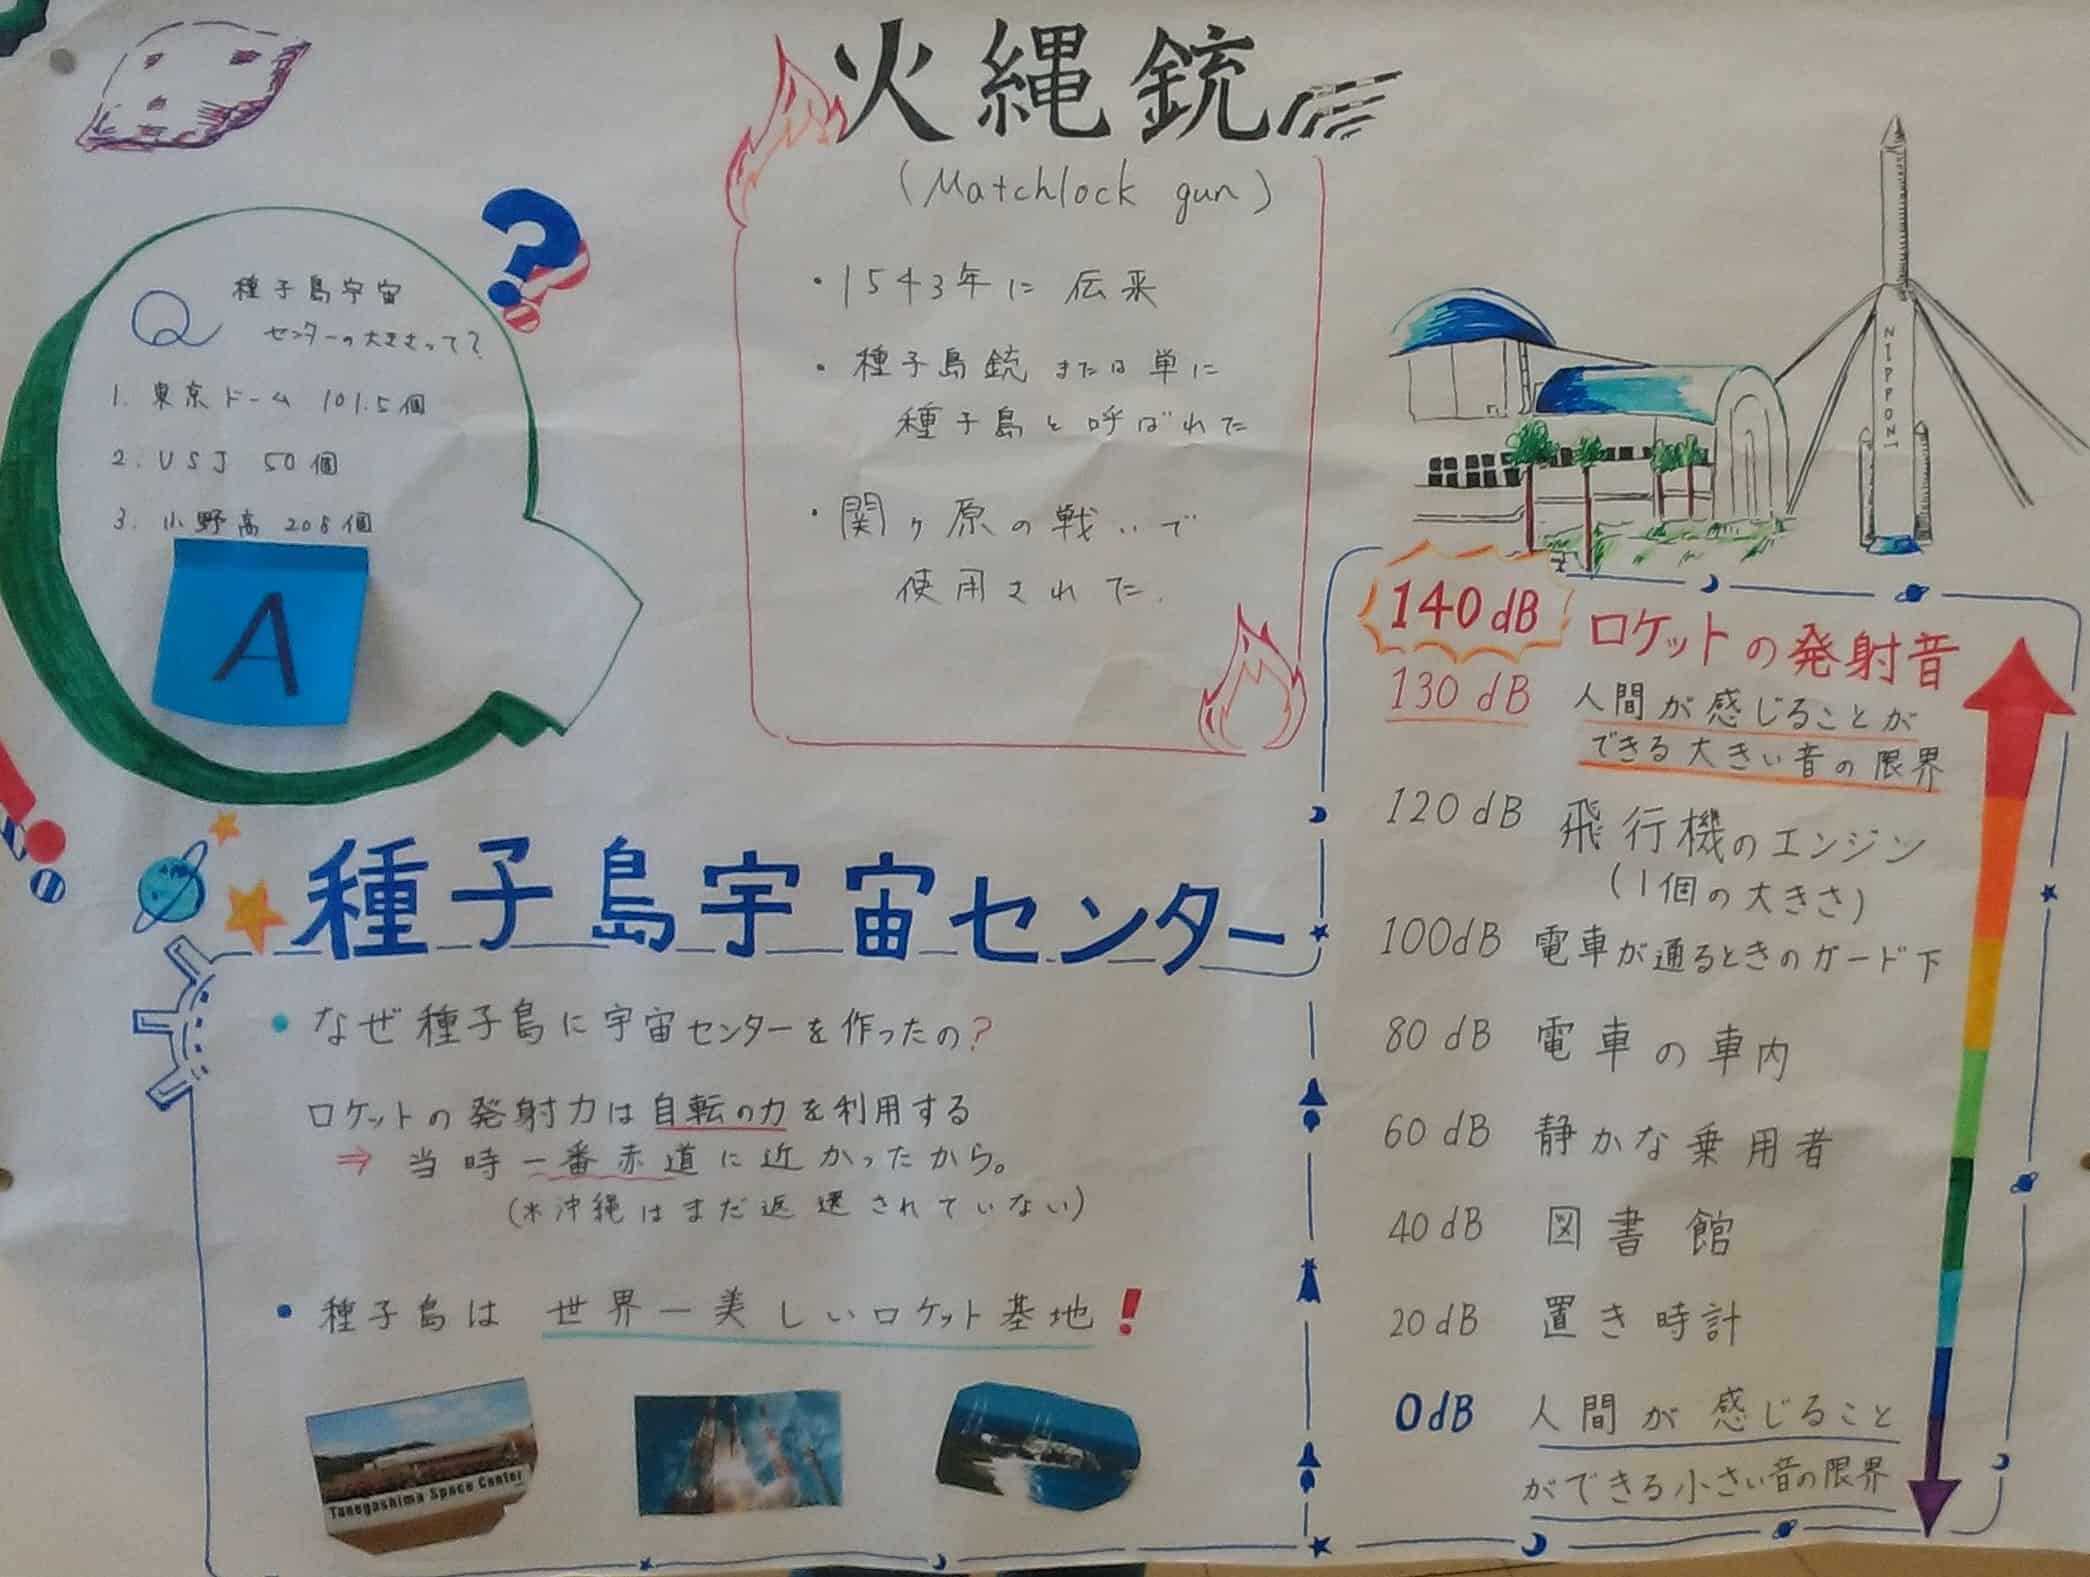 火縄銃
(Matchlock gun)
・1543年に伝来
・種子島銃または単に
種子島と呼ばれた
・関ヶ原の戦いで
使用された.
Q 種子島宇宙
センターの大きさって?
1. 東京ドーム 101.5個
2. USJ 50個
3. 小野高 208個
A
NIPPON
種子島宇宙センター
・なぜ種子島に宇宙センターを作ったの?
ロケットの発射力は自転の力を利用する
⇒ 当時一番赤道に近かったから。
(※沖縄はまだ返還されていない)
・種子島は 世界一美しいロケット基地!
Tanegashima Space Center
140dB ロケットの発射音
130dB 人間が感じることが
できる大きい音の限界
120dB 飛行機のエンジン
(1個の大きさ)
100dB 電車が通るときのガード下
80dB 電車の車内
60dB 静かな乗用者
40dB 図書館
20dB 置き時計
0dB 人間が感じること
ができる小さい音の限界